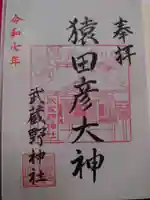 奉拝
猿田彦大神
武蔵野神社
令和七年